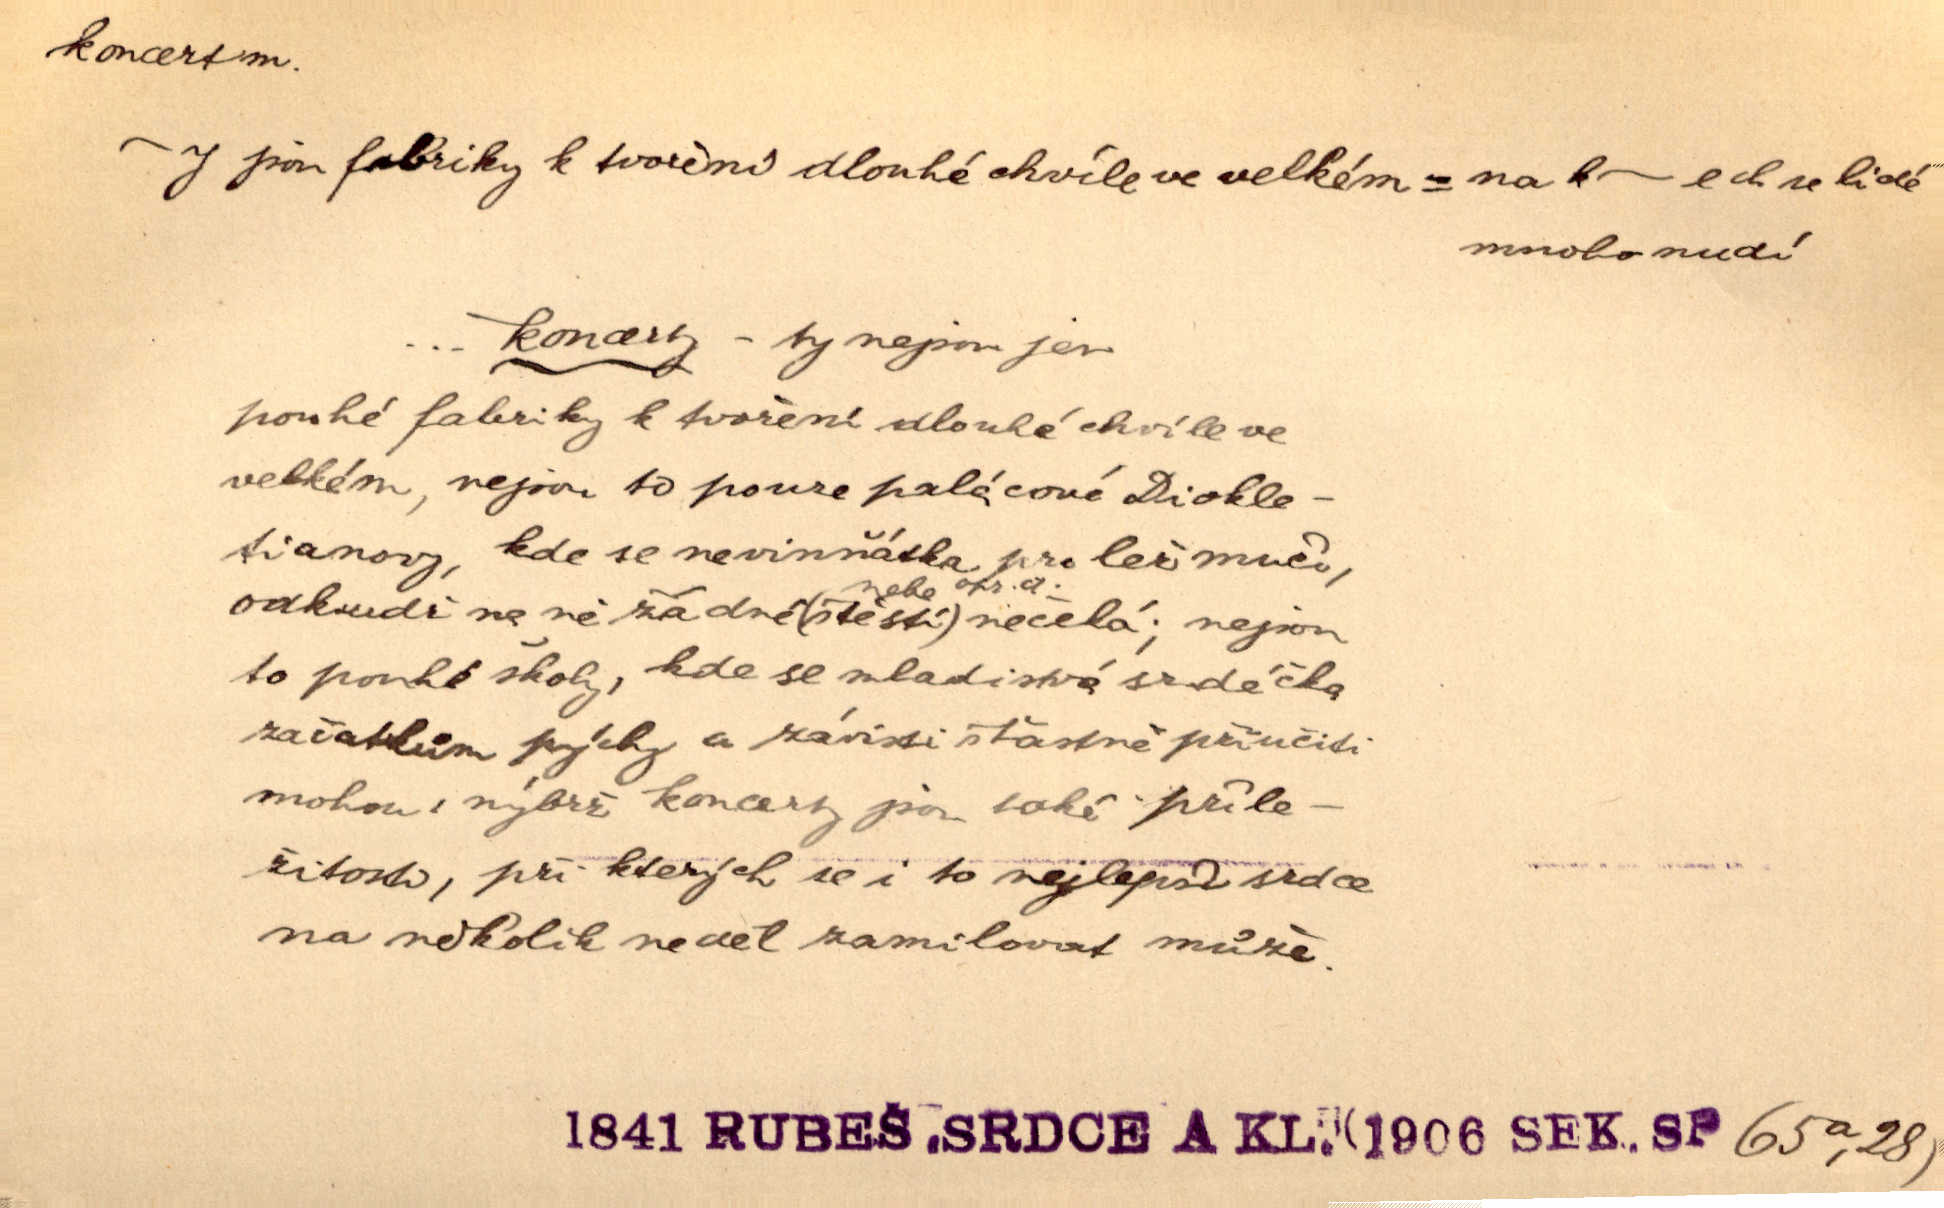 koncert m.
~ y jsou fabriky k tvoření dlouhé chvíle ve velkém = na k ~ ech se lidé
mnoho nudí
... koncerty - ty nejsou jen
pouhé fabriky k tvoření dlouhé chvíle ve
velkém, nejsou to pouze palácové Diokle-
tianovy, kde se neviňátka pro lež mučí,
odkudž na ně žádné (štěstí) nečeká; nejsou
nebe opr. a.
to pouhé školy, kde se mladistvá srdéčka
začátkům pýchy a závisti šťastně přiučiti
mohou, nýbrž koncerty jsou také příle-
žitosti, při kterých se i to nejlepší srdce
na několik neděl zamilovat může.
1841 RUBEŠ, SRDCE A KL. (1906 SEK. SP 65a, 28)